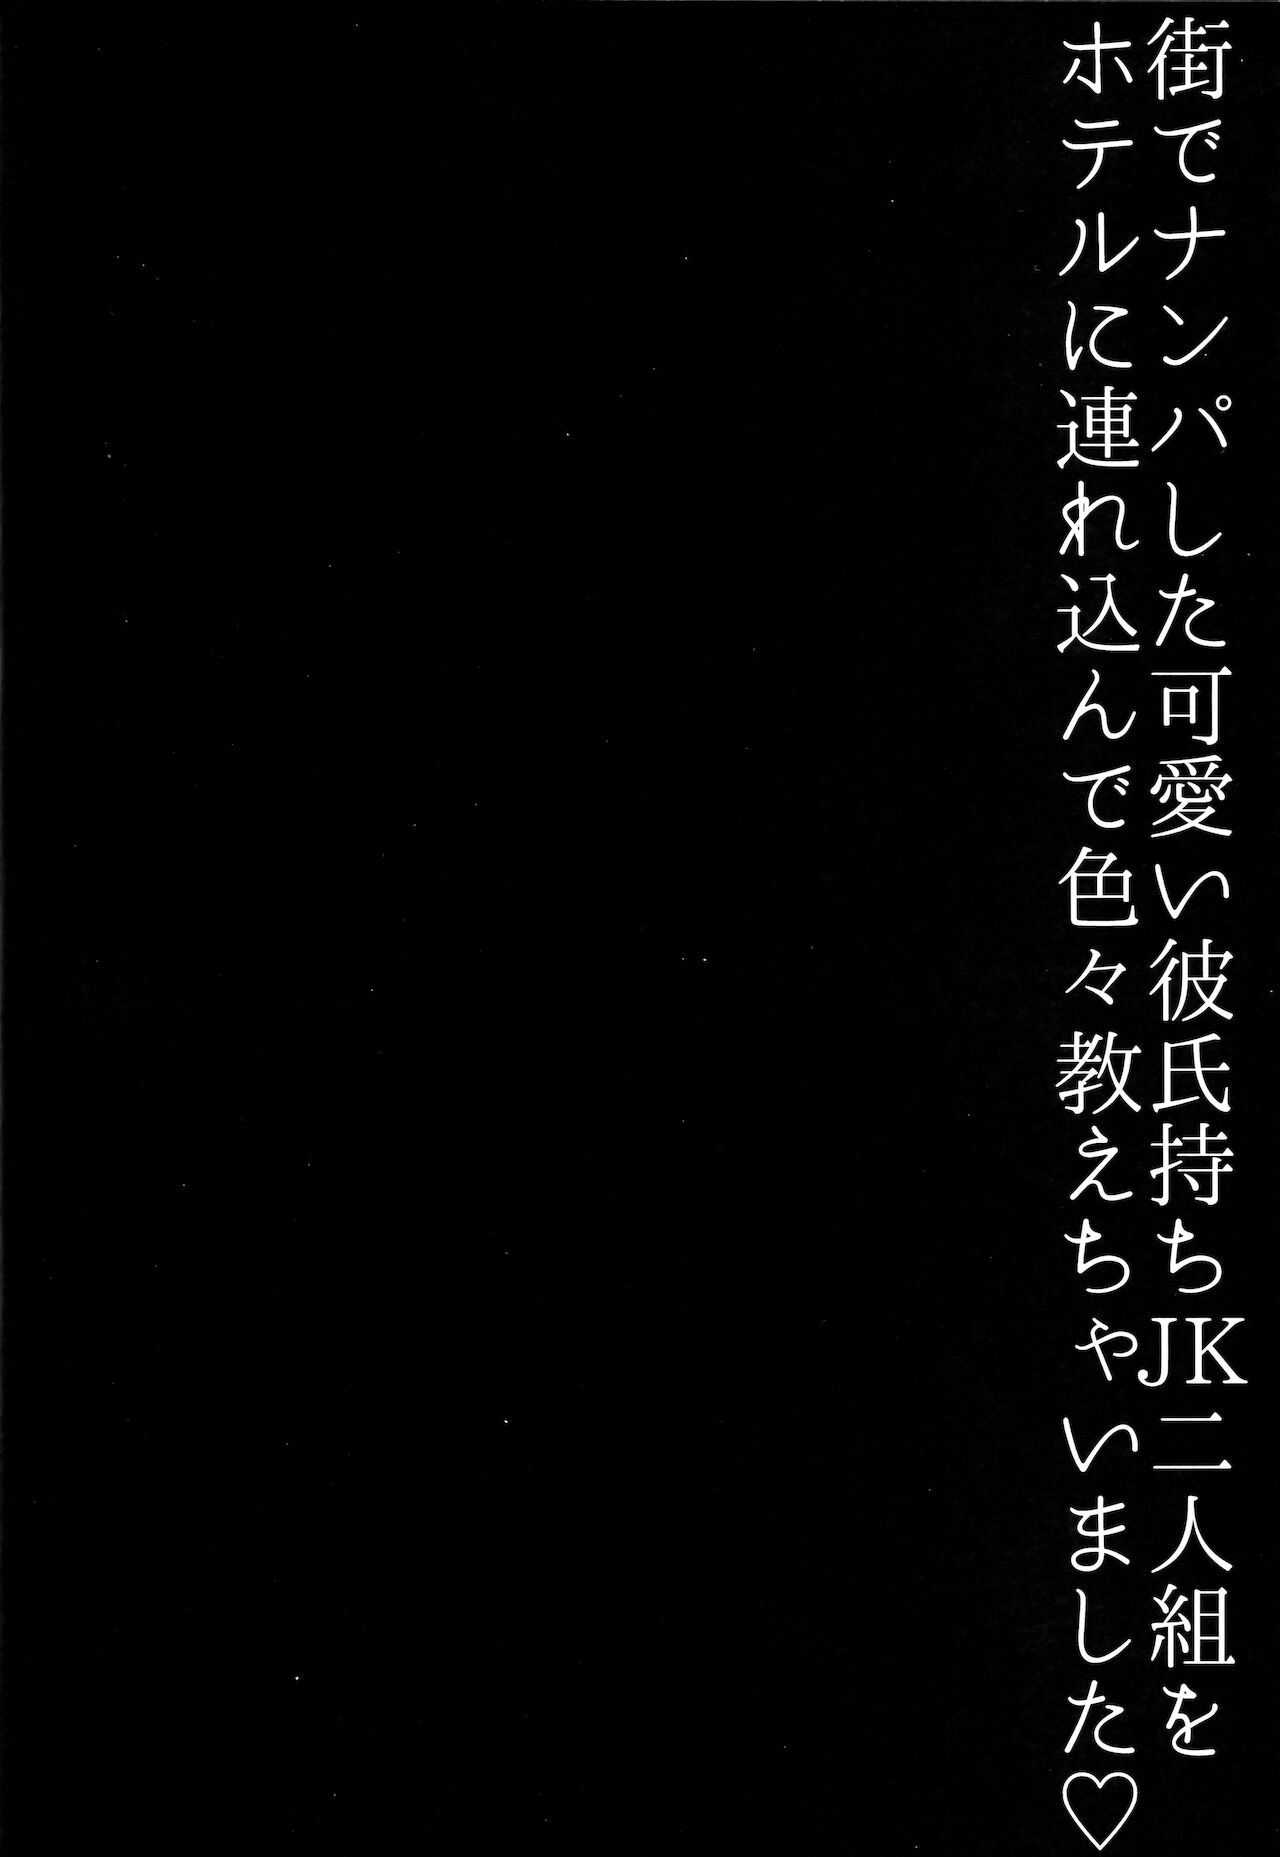 街でナンパした可愛い彼氏持ちJK二人組を
ホテルに連れ込んで色々教えちゃいました♡